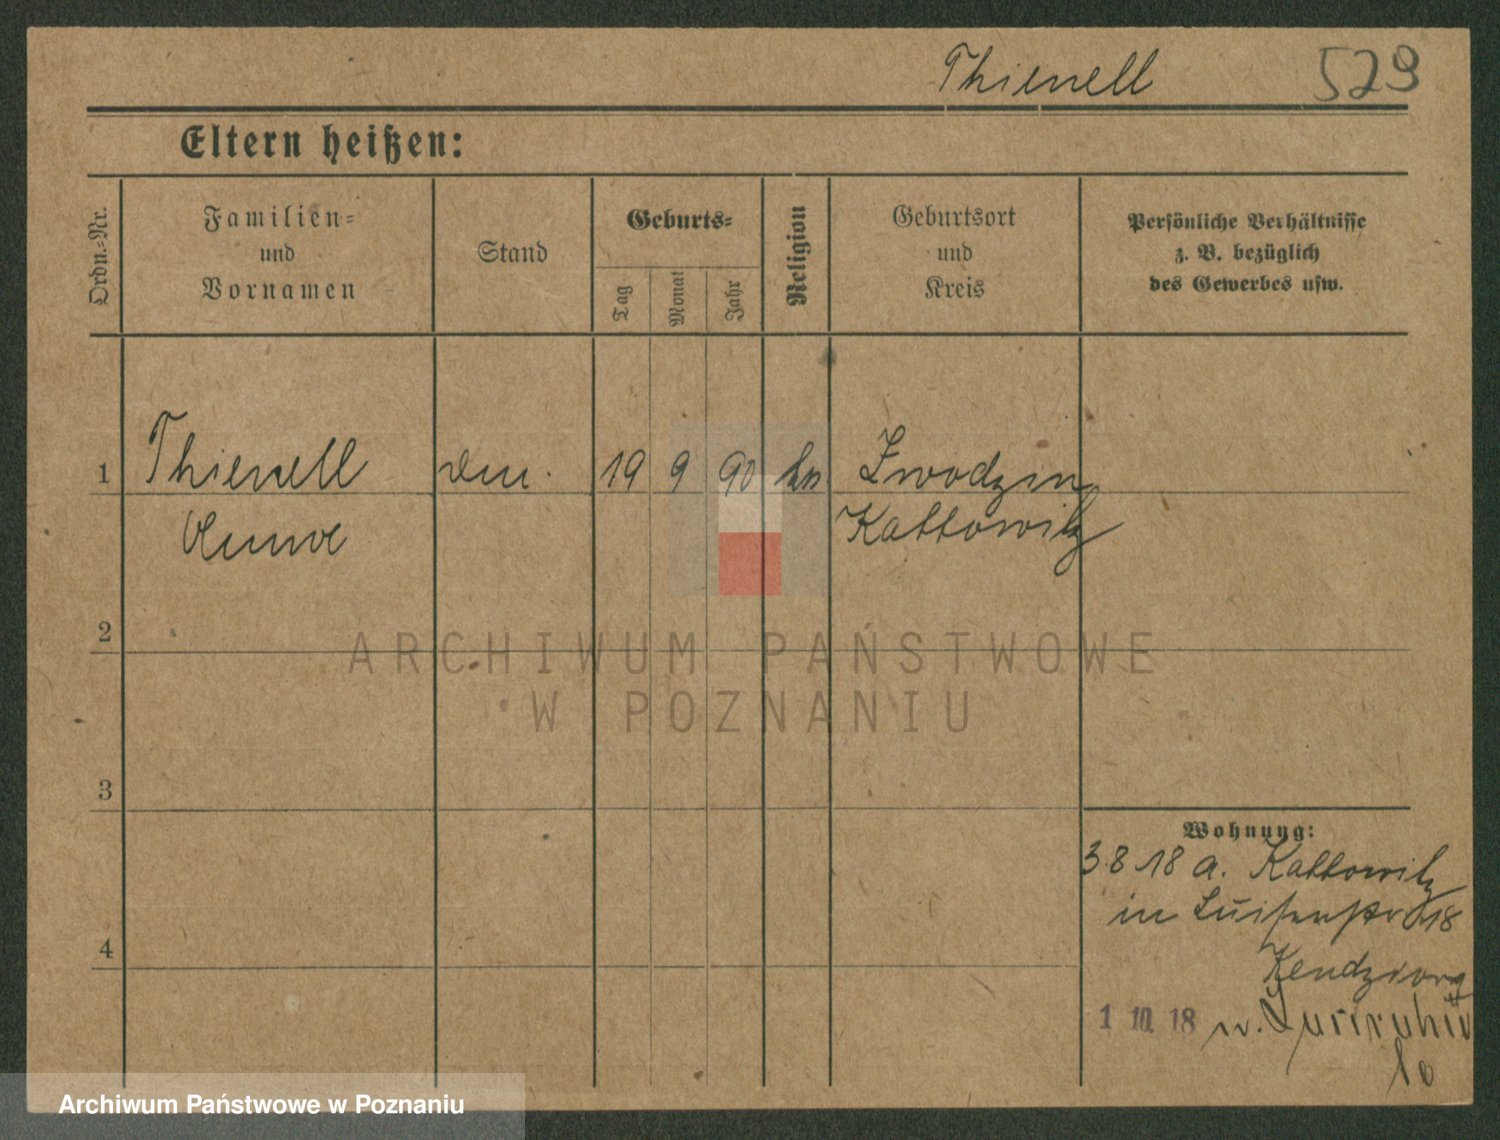 Thienell 529
Eltern heißen:
Ordn.-Nr.
Familien-
und
Vornamen
Stand
Geburts-
Tag
Monat
Jahr
Religion
Geburtsort
und
Kreis
Persönliche Verhältnisse
z. B. bezüglich
des Gewerbes usw.
1 Thienell 19 9 90 Zwodzin
Anna Kattowitz
2
ARCHIWUM PAŃSTWOWE
W POZNANIU
3
Wohnung:
3 8 18 a. Kattowitz
in Luisenstr 18
4
Kendziora
1 10. 18 n.
Archiwum Państwowe w Poznaniu